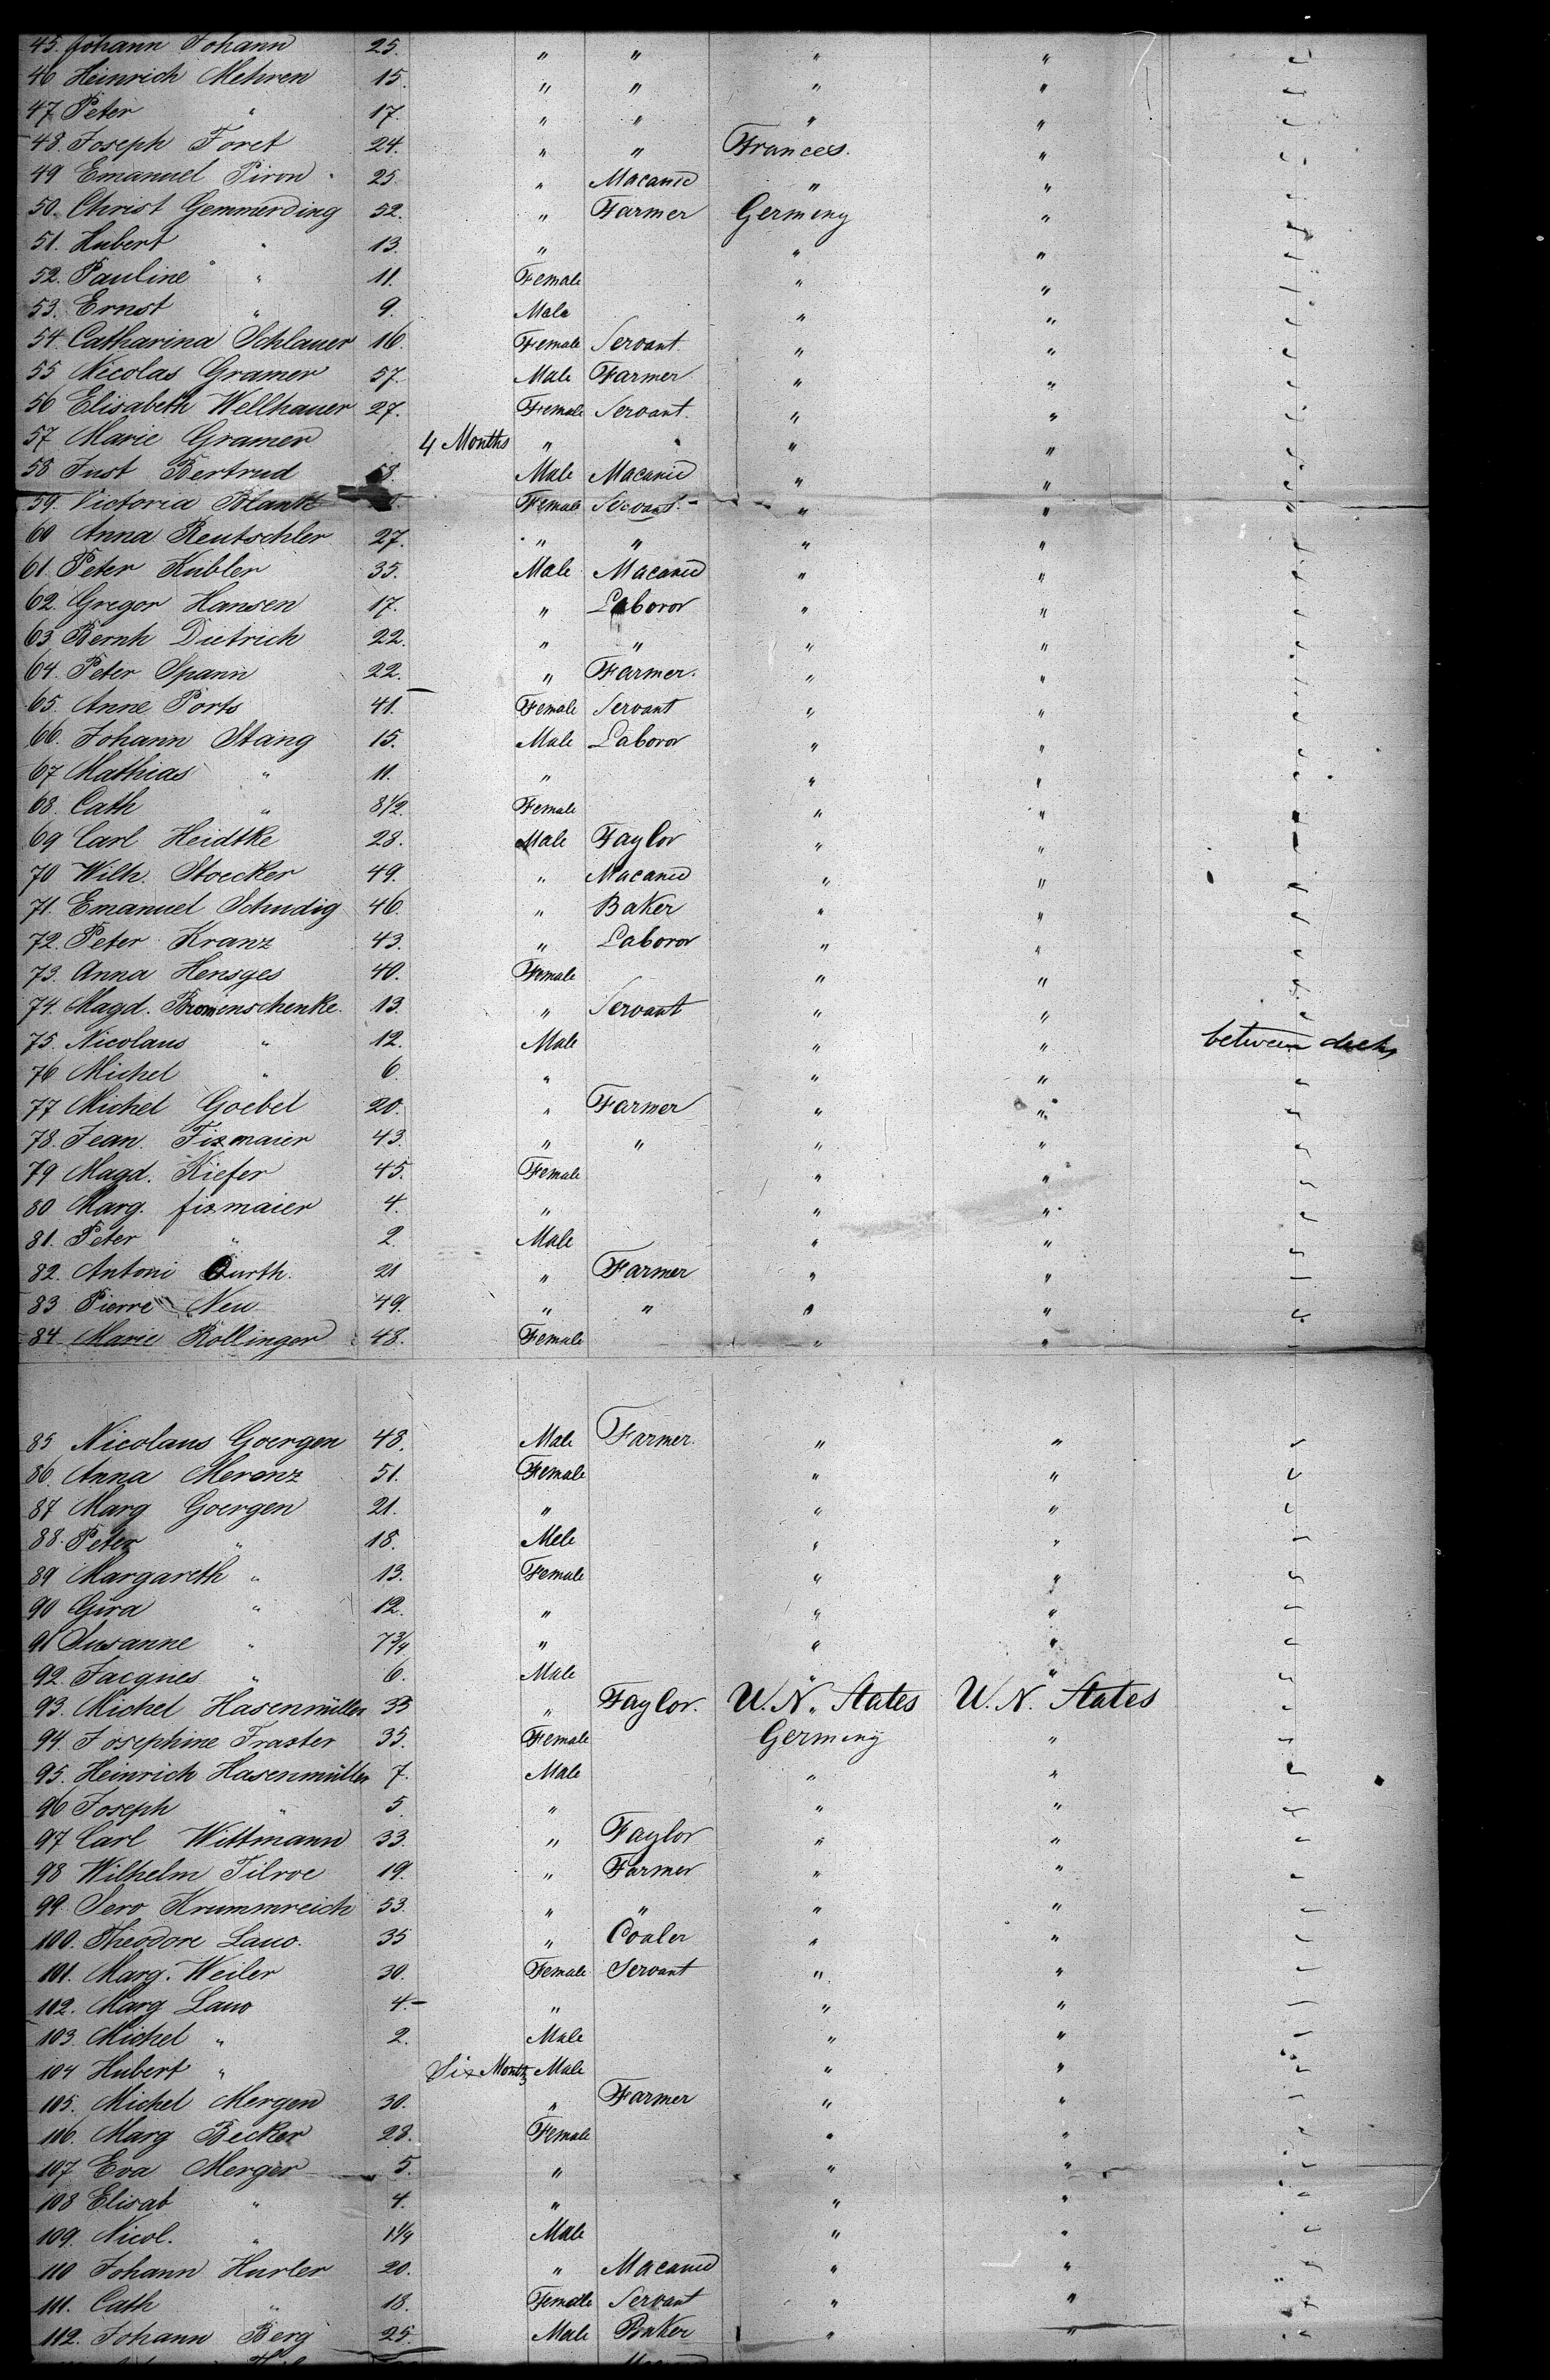 45. Johann Johann 25. " " " "
46 Heinrich Mehren 15. " " " "
47 Peter " 17. " " " "
48. Joseph Foret 24. " " Frances. "
49 Emanuel Piron 25. " Macanic " "
50. Christ Gemmerding 52. " Farmer Germeny "
51. Hubert " 13. " " "
52. Pauline " 11. Female " "
53. Ernst " 9. Male " "
54. Catharina Schlauer 16. Female Servant. " "
55 Nicolas Gramer 57. Male Farmer " "
56 Elisabeth Wellhauer 27. Female Servant. " "
57 Marie Gramer 4 Months " " " "
58 Just Bertrud Male Macanic " "
59. Victoria Blank Female Servant. " "
60 Anna Reutschler 27. " " " "
61. Peter Kubler 35. Male Macanic " "
62. Gregor Hansen 17. " Laboror " "
63. Bernh Dietrich 22. " " " "
64. Peter Spann 22. " Farmer. " "
65. Anne Ports 41. Female Servant " "
66. Johann Stang 15. Male Laboror " "
67 Mathias " 11. " " "
68. Cath " 8 1/2 Female " "
69 Carl Heidtke 28. Male Taylor " "
70 Wilh. Stoecker 49. " Macanic " "
71. Emanuel Schudig 46. " Baker " "
72. Peter Kranz 43. " Laboror " "
73. Anna Hensges 40. Female " "
74. Magd. Bromenschenke. 13. " Servant " "
75. Nicolaus " 12. Male " " between decks
76 Michel " 6. " " "
77 Michel Goebel 20. " Farmer " "
78. Jean Fixmaier 43. " " " "
79 Magd. Kiefer 45. Female " "
80 Marg. fixmaier 4. " " "
81. Peter " 2. Male " "
82. Antoni Ourth. 21 " Farmer " "
83 Pierre Neu 49. " " " "
84 Marie Rollinger 48. Female " "
85 Nicolaus Goergen 48. Male Farmer. " "
86. Anna Meranz 51. Female " "
87 Marg Goergen 21. " " "
88. Peter " 18. Male " "
89 Margareth " 13. Female " "
90 Gira " 12. " " "
91 Susanne " 7 3/4 " " "
92. Jacques " 6. Male " "
93. Michel Hasenmüller 33 " Taylor. U. N. States U. N. States
94. Josephine Fraster 35. Female Germeny "
95. Heinrich Hasenmüller 7. Male " "
96 Joseph " 5. " " "
97 Carl Wittmann 33. " Taylor " "
98 Wilhelm Tilroe 19. " Farmer " "
99. Sero Krummreich 53. " " " "
100. Theodore Lauo. 35 " Coaler " "
101. Marg. Weiler 30. Female Servant " "
102. Marg Lauo 4. " " "
103. Michel " 2. Male " "
104 Hubert " Six Months Male " "
105. Michel Mergen 30. " Farmer " "
106. Marg Becker 28. Female " "
107 Eva Merger 5. " " "
108 Elisab " 4. " " "
109. Nicol. " 1 1/4 Male " "
110 Johann Hurler 20. " Macanic " "
111. Cath " 18. Female Servant " "
112. Johann Berg 25. Male Baker " "